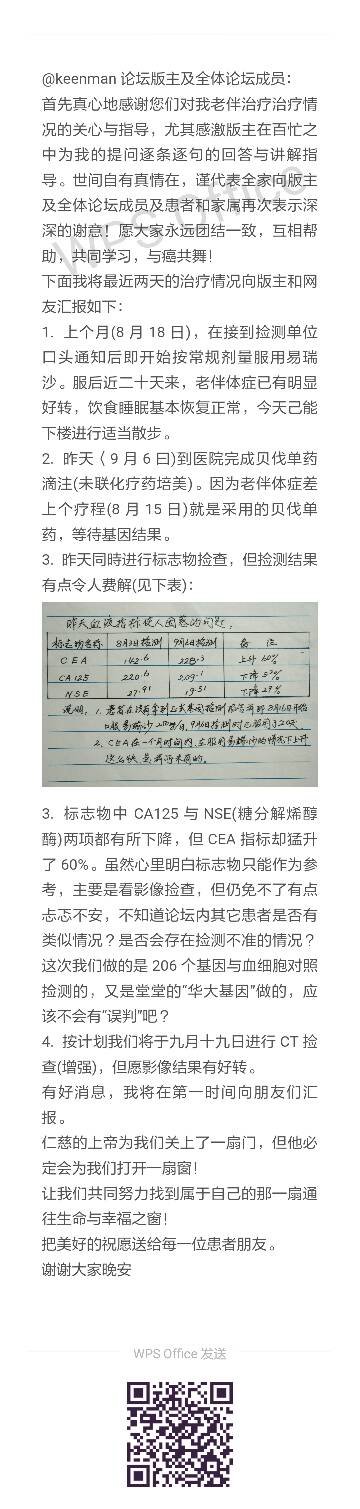 @keenman 论坛版主及全体论坛成员：
首先真心地感谢您们对我老伴治疗治疗情
况的关心与指导，尤其感激版主在百忙之
中为我的提问逐条逐句的回答与讲解指
导。世间自有真情在，谨代表全家向版主
及全体论坛成员及患者和家属再次表示深
深的谢意！愿大家永远团结一致，互相帮
助，共同学习，与癌共舞！
下面我将最近两天的治疗情况向版主和网
友汇报如下：
1. 上个月(8 月 18 日)，在接到捡测单位
口头通知后即开始按常规剂量服用易瑞
沙。服后近二十天来，老伴体症已有明显
好转，饮食睡眠基本恢复正常，今天己能
下楼进行适当散步。
2. 昨天〈 9 月 6 曰)到医院完成贝伐单药
滴注(未联化疗药培美)。因为老伴体症差
上个疗程(8 月 15 日)就是采用的贝伐单
药，等待基因结果。
3. 昨天同時进行标志物捡查，但捡测结果
有点令人费解(见下表)：
昨天血液指标使人困惑的问题，
标志物名称 8月3日检测 9月6日检测 备 注
CEA 142.6 228.3 上升 60%
CA125 220.6 209.1 下降 5%
NSE 27.91 19.51 下降 29%
说明：1. 患者在没有拿到正式基因检测报告前即8月18日开始
口服易瑞沙 9月6日检测时已服用了20天
2. CEA在一个月时间内，在服用易瑞沙的情况下上升
这么快是前所未有的。
3. 标志物中 CA125 与 NSE(糖分解烯醇
酶)两项都有所下降，但 CEA 指标却猛升
了 60%。虽然心里明白标志物只能作为参
考，主要是看影像捡查，但仍免不了有点
忐忑不安，不知道论坛内其它患者是否有
类似情况？是否会存在捡测不准的情况？
这次我们做的是 206 个基因与血细胞对照
捡测的，又是堂堂的“华大基因”做的，应
该不会有“误判”吧？
4. 按计划我们将于九月十九日进行 CT 捡
查(增强)，但愿影像结果有好转。
有好消息，我将在第一时间向朋友们汇
报。
仁慈的上帝为我们关上了一扇门，但他必
定会为我们打开一扇窗！
让我们共同努力找到属于自己的那一扇通
往生命与幸福之窗！
把美好的祝愿送给每一位患者朋友。
谢谢大家晚安
WPS Office
WPS Office 发送